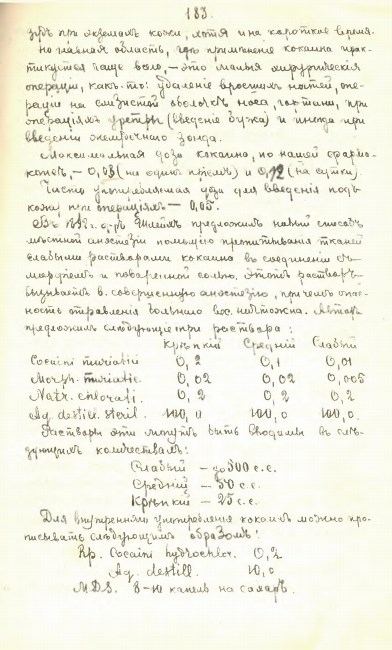 183.
зудѣ при экземахъ кожи, хотя и на короткое время.
Но главная область, гдѣ примѣненіе кокаина прак-
тикуется чаще всего, — это малыя хирургическія
операціи, какъ-то: удаленіе вросшихъ ногтей, опе-
раціи на слизистой оболочкѣ носа, гортани, при
операціяхъ уретры (введеніе бужа) и иногда при
введеніи желудочнаго зонда.
Максимальная доза кокаина, по нашей фарма-
копеѣ, — 0,03 (на одинъ пріемъ) и 0,12 (на сутки).
Чисто употребляющая доза для введенія подъ
кожу при операціяхъ — 0,05.
Въ д-ръ Шлейхъ предложилъ новый способъ
мѣстной анэстезіи помощью пропитыванія тканей
слабыми растворами кокаина въ соединеніи съ
морфіемъ и поваренной солью. Этотъ растворъ
вызываетъ в. совершенную анэстезію, при чемъ опас-
ность отравленія больного невозможна. Авторъ
предложилъ слѣдующіе три раствора:
Крѣпкій Средній Слабый
Cocaini muriatici 0,2 0,1 0,01
Morph. muriatic. 0,02 0,02 0,005
Natr. chlorati. 0,2 0,2 0,2
Aq. destill. steril. 100,0 100,0 100,0.
Растворы эти могутъ быть вводимы въ слѣ-
дующихъ количествахъ:
Слабый — до 500 с.с.
Средній — 50 с.с.
Крѣпкій — 25 с.с.
Для внутренняго употребленія кокаинъ можно про-
писывать слѣдующимъ образомъ:
Rp. Cocaini hydrochlor. 0,2
Aq. destill. 10,0
M.D.S. 8-10 капель на сахарѣ.